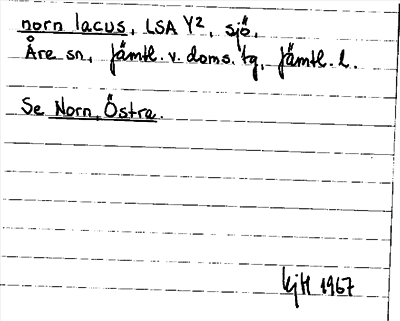 norn lacus, LSA Y², sjö,
Åre sn, Jämtl. v. doms. tg, Jämtl. l.
Se Norn, Östra.
kjH 1967